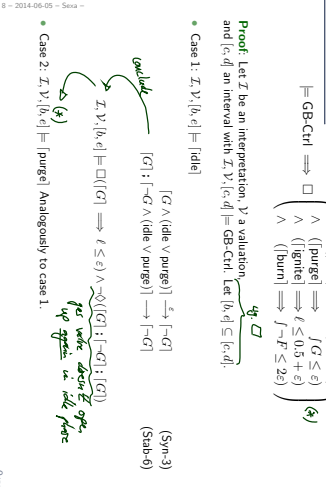 8 – 2014-06-05 – Sexa –
∧ (⌈purge⌉ ⟹ ∫G ≤ ε)
⊨ GB-Ctrl ⟹ □ ( ∧ (⌈ignite⌉ ⟹ ℓ ≤ 0.5 + ε) ) (*)
∧ (⌈burn⌉ ⟹ ∫¬F ≤ 2ε)
Proof: Let I be an interpretation, V a valuation,
and [c, d] an interval with I, V, [c, d] ⊨ GB-Ctrl. Let [b, e] ⊆ [c, d].
□
• Case 1: I, V, [b, e] ⊨ ⌈idle⌉
⌈G ∧ (idle ∨ purge)⌉ —ε→ ⌈¬G⌉ (Syn-3)
⌈G⌉ ; ⌈¬G ∧ (idle ∨ purge)⌉ ⟶ ⌈¬G⌉ (Stab-6)
conclude
I, V, [b, e] ⊨ □(⌈G⌉ ⟹ ℓ ≤ ε) ∧ ¬◇(⌈G⌉ ; ⌈¬G⌉ ; ⌈G⌉)
(*)
gas valve doesn't open
up again in idle phase
• Case 2: I, V, [b, e] ⊨ ⌈purge⌉ Analogously to case 1.